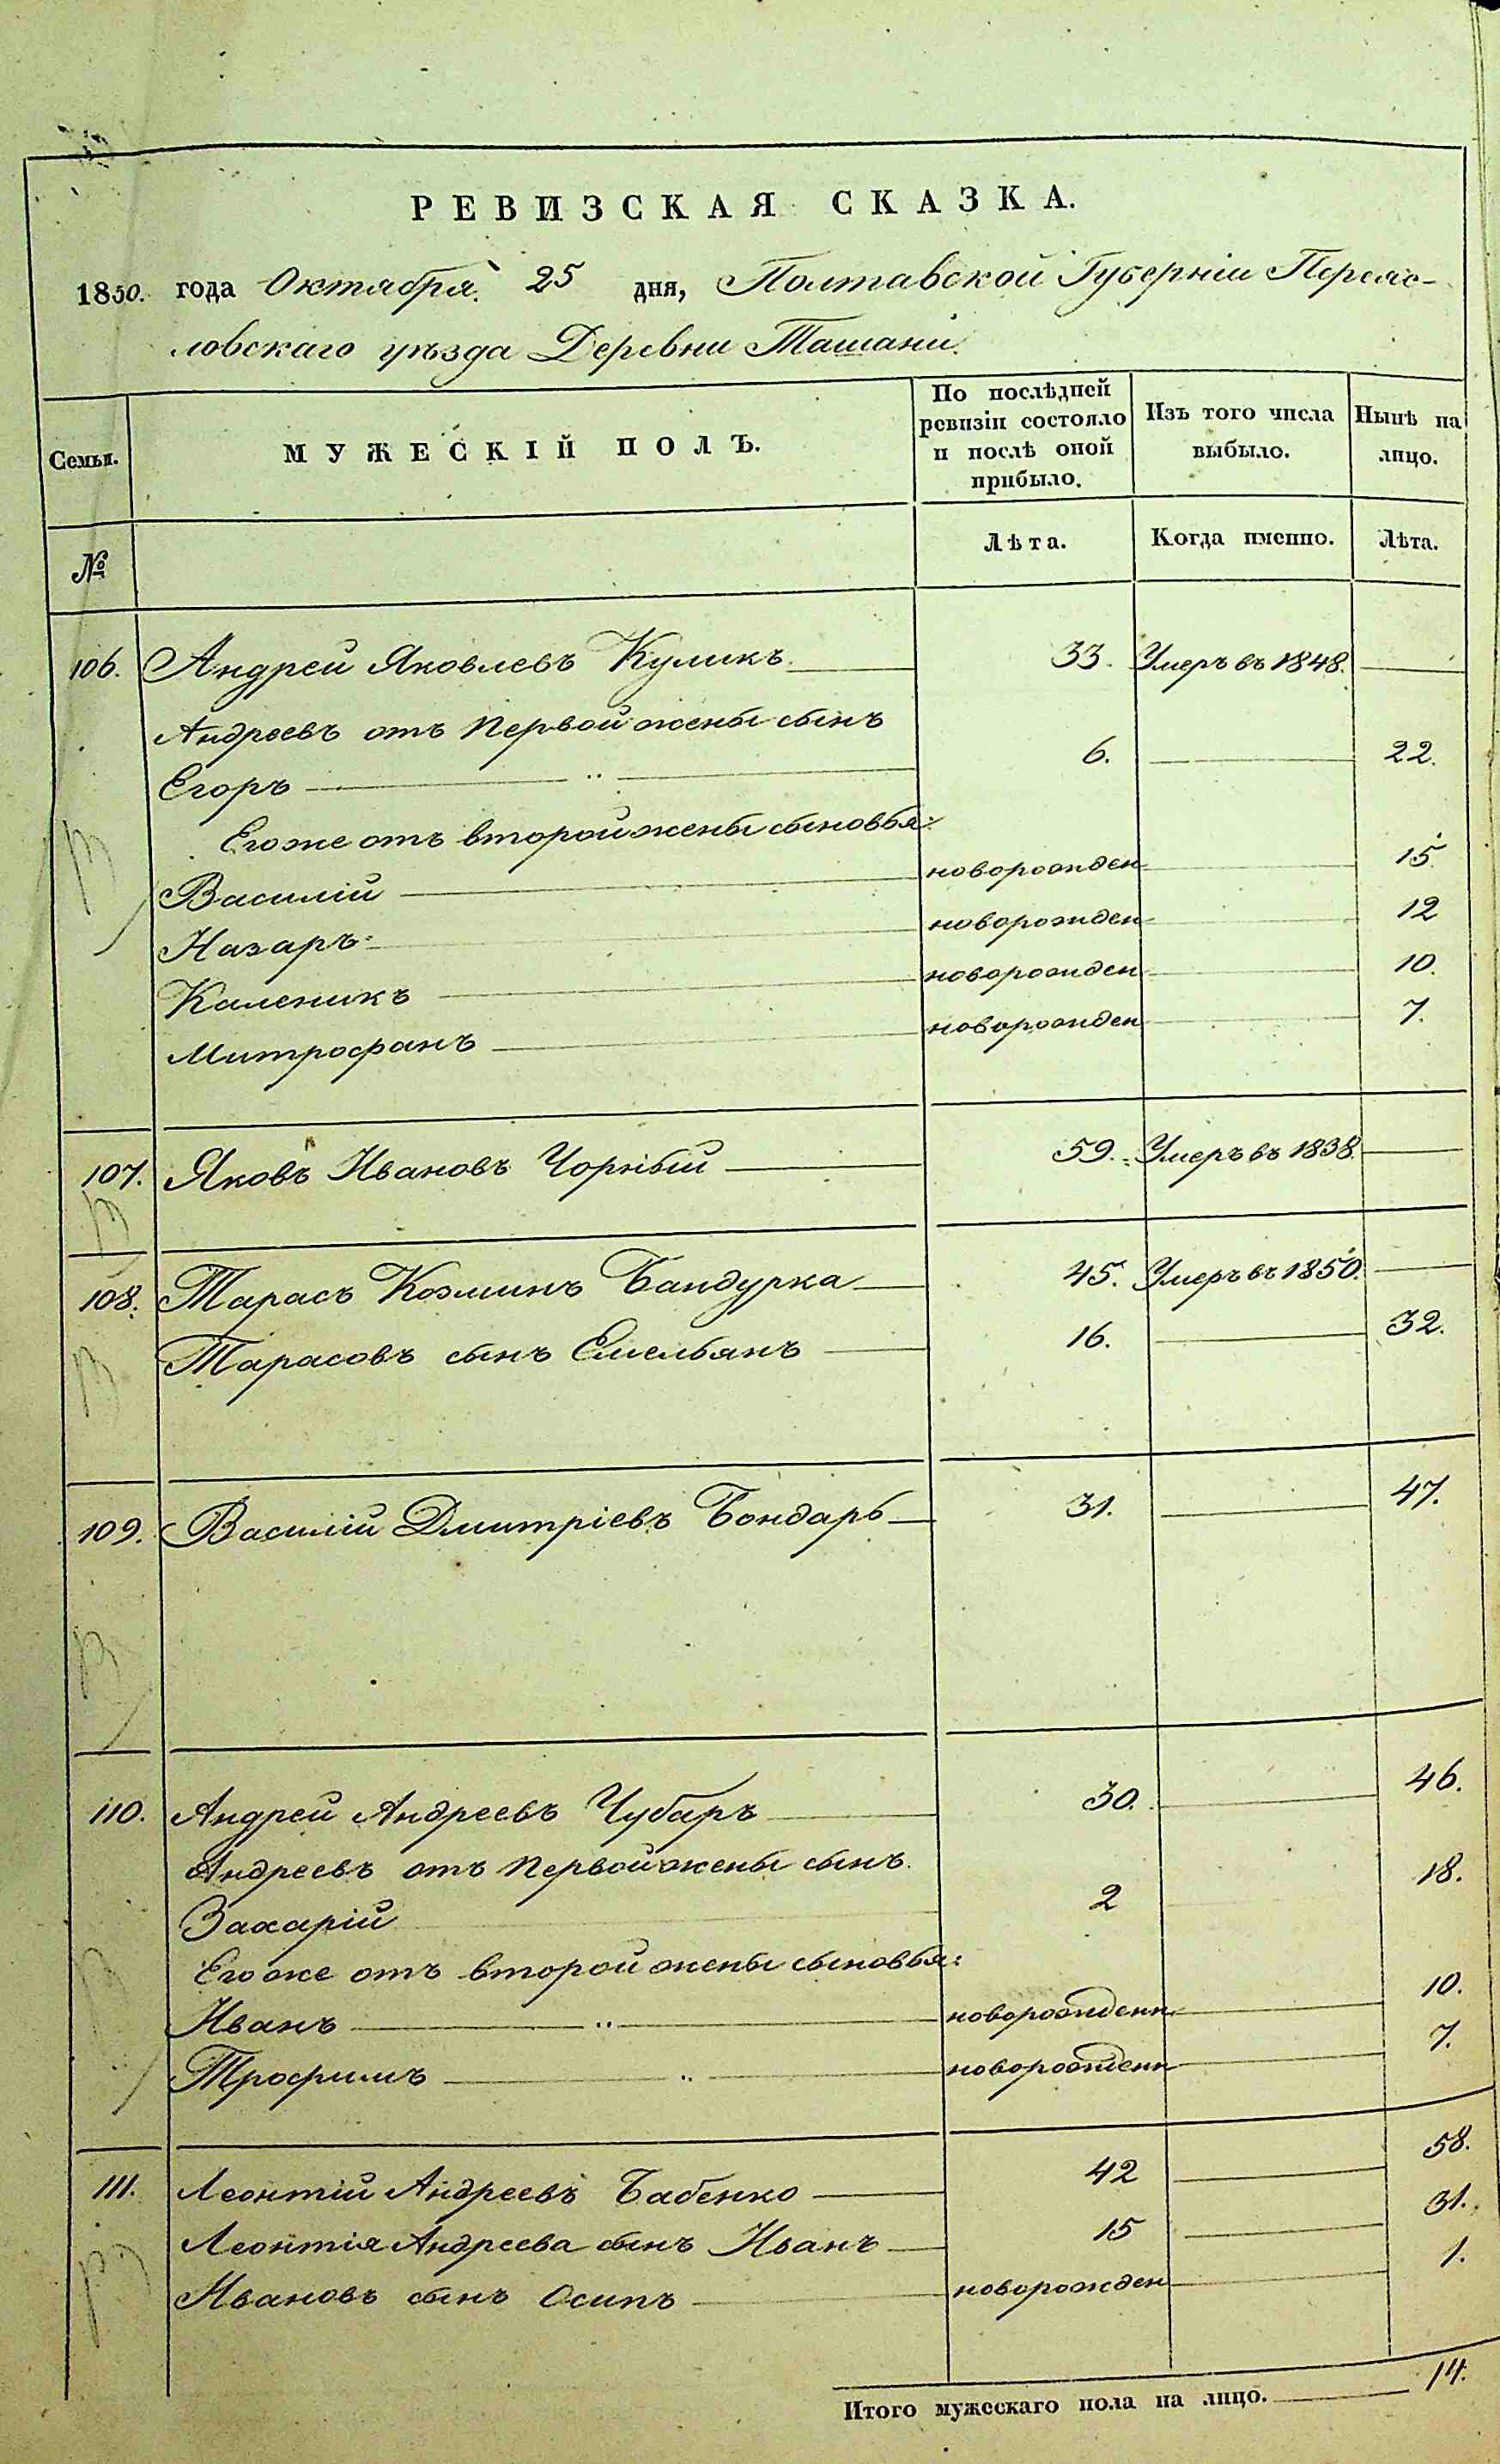 РЕВИЗСКАЯ СКАЗКА.
1850. года Октября 25 дня, Полтавской Губерніи Переяс-
ловскаго уѣзда Деревни Ташани.
Семьи. МУЖЕСКІЙ ПОЛЪ. По послѣдней ревизіи состояло и послѣ оной прибыло. Изъ того числа выбыло. Нынѣ на лицо.
№ Лѣта. Когда именно. Лѣта.
106. Андрей Яковлевъ Куликъ 33. Умеръ въ 1848.
Андреевъ отъ первой жены сынъ
Егоръ 6. 22.
Его же отъ второй жены сыновья:
Василій новорожден 15.
Назаръ новорожден 12
Каленикъ новорожден 10.
Митрофанъ новорожден 7.
107. Яковъ Ивановъ Чорный 59. Умеръ въ 1838.
108. Тарасъ Козминъ Бандурка 45. Умеръ въ 1850.
Тарасовъ сынъ Емельянъ 16. 32.
109. Василій Дмитріевъ Бондарь 31. 47.
110. Андрей Андреевъ Чубаръ 30. 46.
Андреевъ отъ первой жены сынъ
Захарій 2 18.
Его же отъ второй жены сыновья:
Иванъ новорожденн 10.
Трофимъ новорожденн 7.
111. Леонтій Андреевъ Бабенко 42 58.
Леонтія Андреева сынъ Иванъ 15 31.
Ивановъ сынъ Осипъ новорожден 1.
Итого мужескаго пола на лицо. 14.